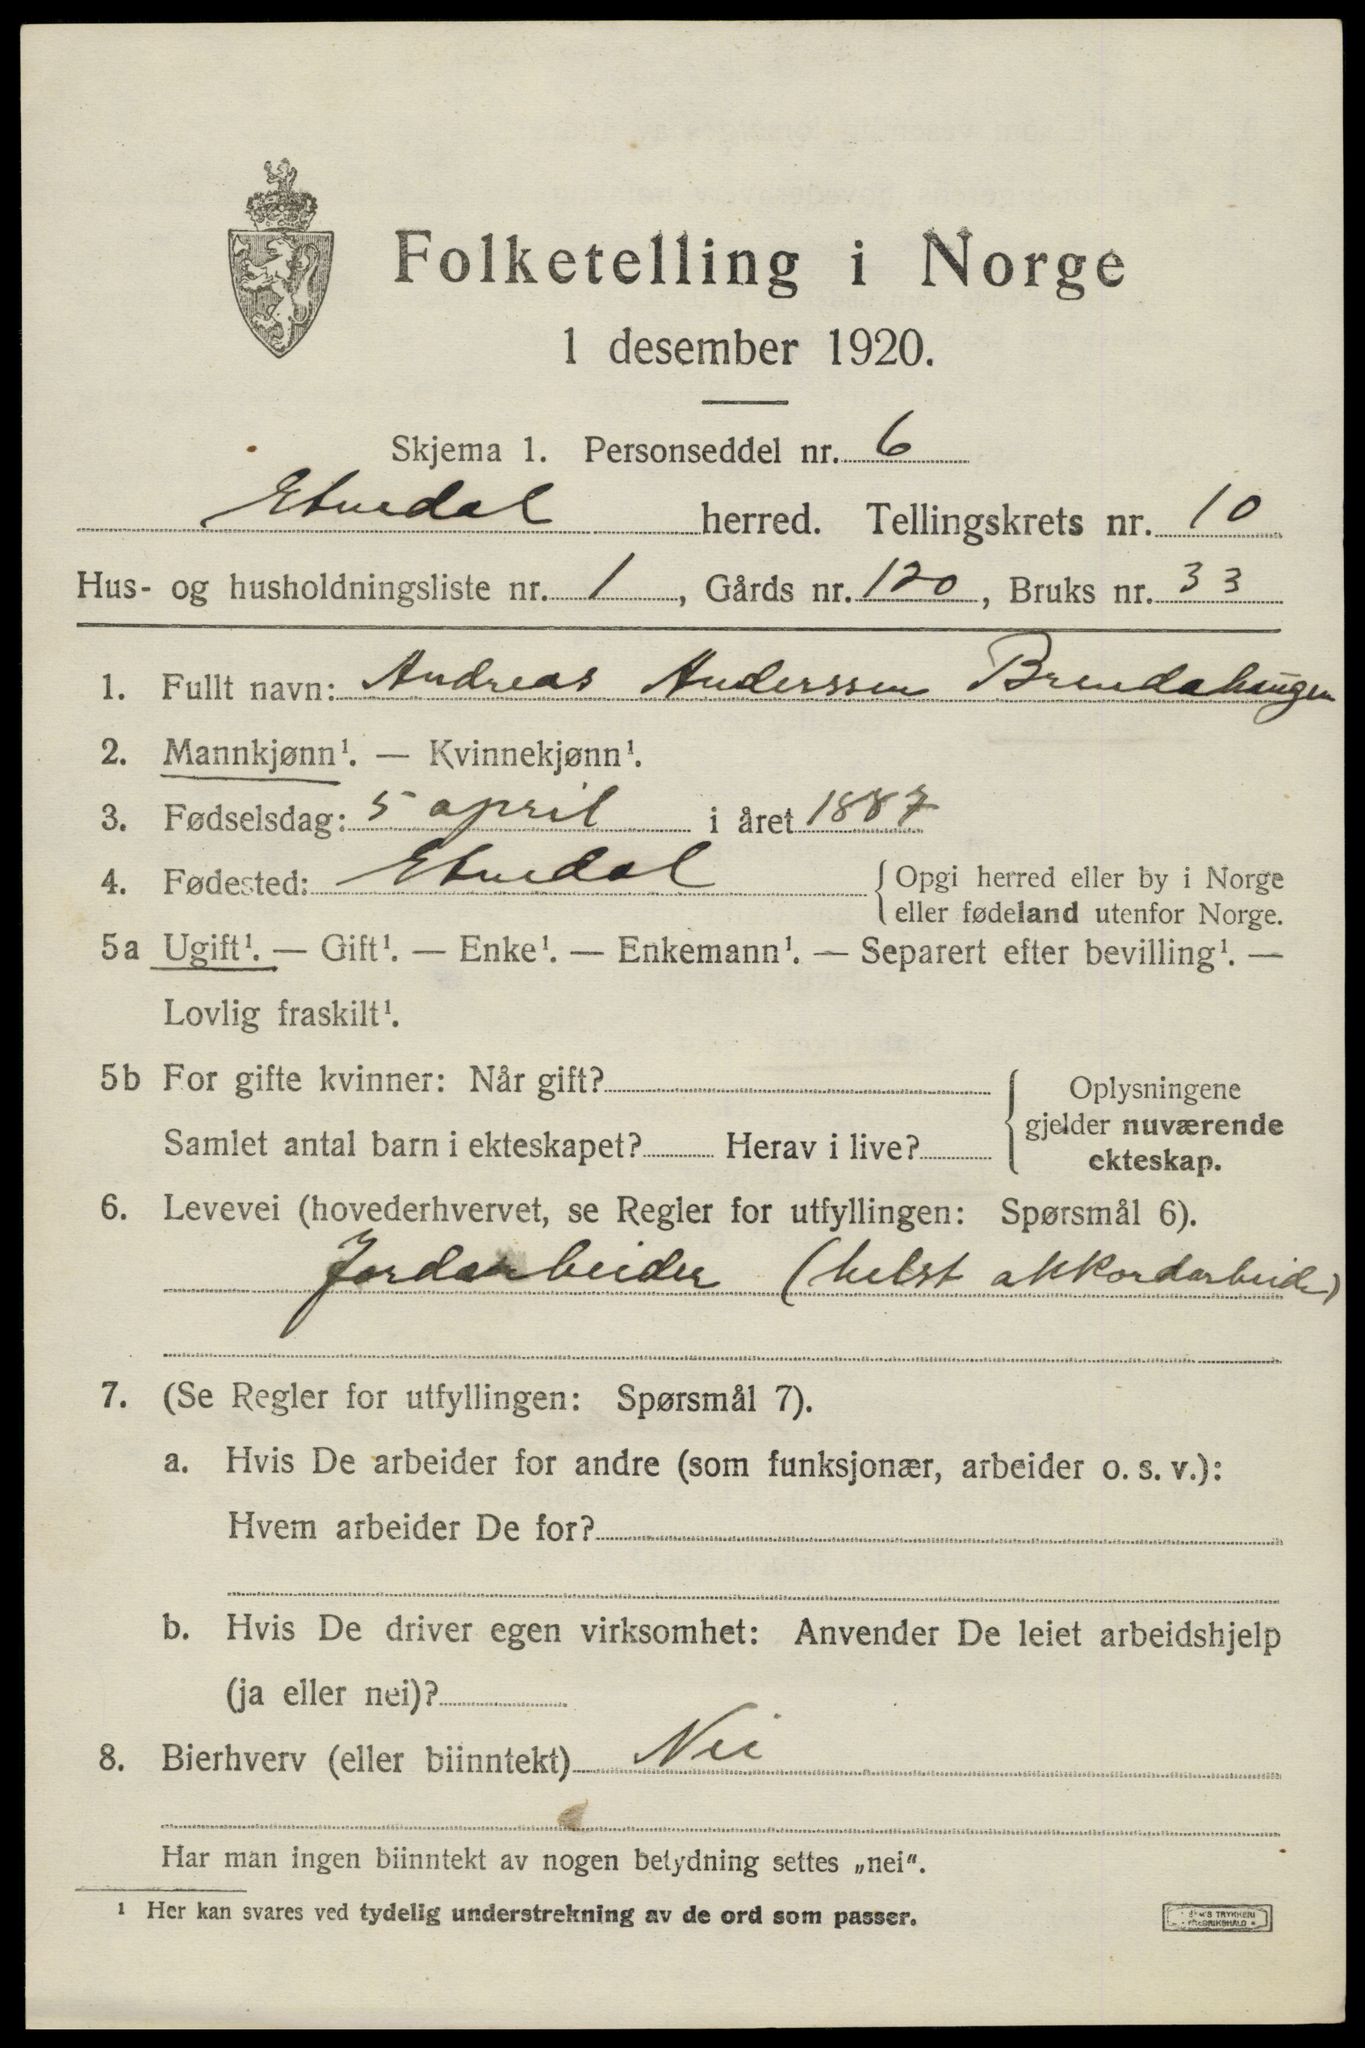 Folketelling i Norge
1 desember 1920.
Skjema 1. Personseddel nr. 6
Etnedal herred. Tellingskrets nr. 10
Hus- og husholdningsliste nr. 1, Gårds nr. 120, Bruks nr. 33
1. Fullt navn: Andreas Anderssen Brendahaugen
2. Mannkjønn¹. — Kvinnekjønn¹.
3. Fødselsdag: 5 april i året 1887
4. Fødested: Etnedal { Opgi herred eller by i Norge
eller fødeland utenfor Norge.
5a Ugift¹. — Gift¹. — Enke¹. — Enkemann¹. — Separert efter bevilling¹. —
Lovlig fraskilt¹.
5b For gifte kvinner: Når gift?
Samlet antal barn i ekteskapet? Herav i live?
{ Oplysningene
gjelder nuværende
ekteskap.
6. Levevei (hovederhvervet, se Regler for utfyllingen: Spørsmål 6).
Jordarbeider (helst akkordarbeide)
7. (Se Regler for utfyllingen: Spørsmål 7).
a. Hvis De arbeider for andre (som funksjonær, arbeider o. s. v.):
Hvem arbeider De for?
b. Hvis De driver egen virksomhet: Anvender De leiet arbeidshjelp
(ja eller nei)?
8. Bierhverv (eller biinntekt) Nei
Har man ingen biinntekt av nogen betydning settes „nei“.
¹ Her kan svares ved tydelig understrekning av de ord som passer.
TRYKKERI
FREDRIKSHALD